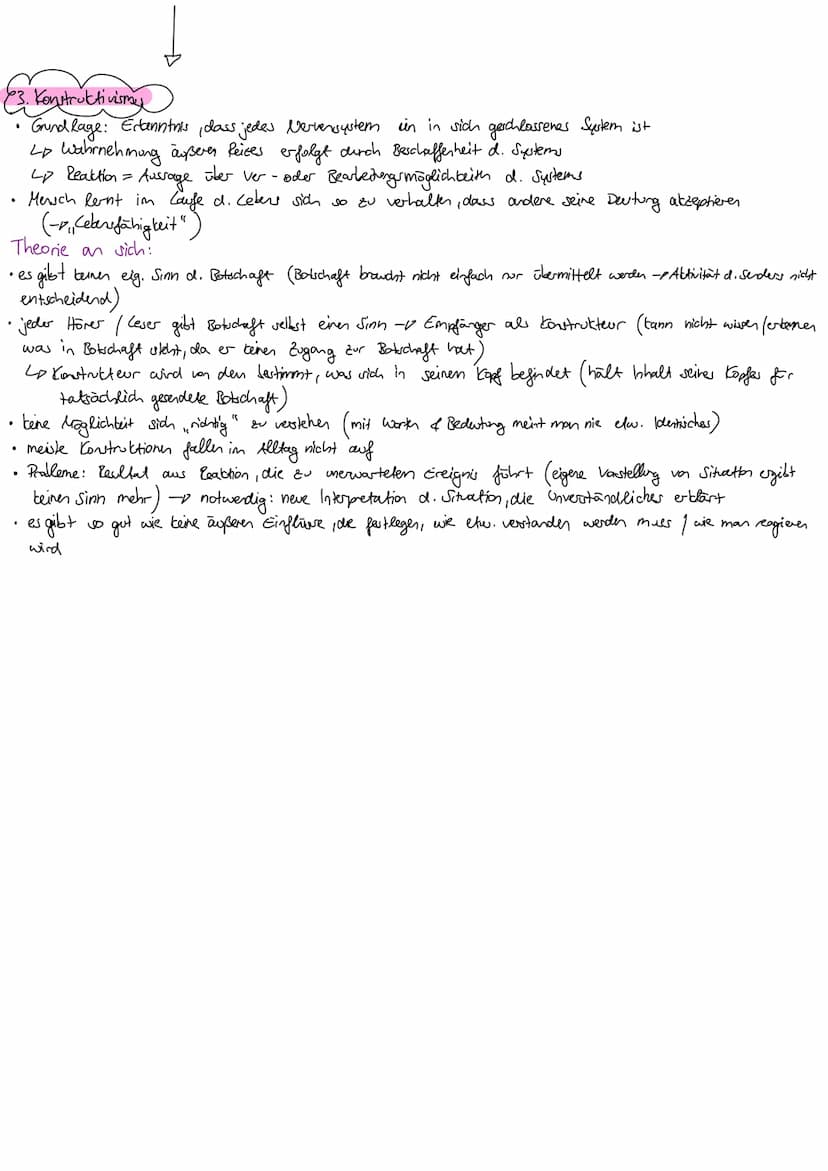 3. Konstruktivismus
• Grundlage: Erkenntnis, dass jedes Nervensystem ein in sich geschlossenes System ist
↳ Wahrnehmung äußeren Reizes erfolgt durch Beschaffenheit d. Systems
↳ Reaktion = Aussage über Ver- oder Bearbeitungsmöglichkeiten d. Systems
• Mensch lernt im Laufe d. Lebens sich so zu verhalten, dass andere seine Deutung akzeptieren
(→ „Lebensfähigkeit")
Theorie an sich:
• es gibt keinen eig. Sinn d. Botschaft (Botschaft braucht nicht einfach nur übermittelt werden → Aktivität d. Senders nicht
entscheidend)
• jeder Hörer / Leser gibt Botschaft selbst einen Sinn → Empfänger als Konstrukteur (kann nicht wissen/erkennen
was in Botschaft steht, da er keinen Zugang zur Botschaft hat)
↳ Konstrukteur wird von dem bestimmt, was sich in seinem Kopf befindet (hält Inhalt seines Kopfes für
tatsächlich gesendete Botschaft)
• keine Möglichkeit sich „richtig" zu verstehen (mit Worten & Bedeutung meint man nie etw. Identisches)
• meiste Konstruktionen fallen im Alltag nicht auf
• Probleme: Resultat aus Reaktion, die zu unerwartetem Ereignis führt (eigene Vorstellung von Situation ergibt
keinen Sinn mehr) → notwendig: neue Interpretation d. Situation, die Unverständliches erklärt
• es gibt so gut wie keine äußeren Einflüsse, die festlegen, wie etw. verstanden werden muss / wie man reagieren
wird